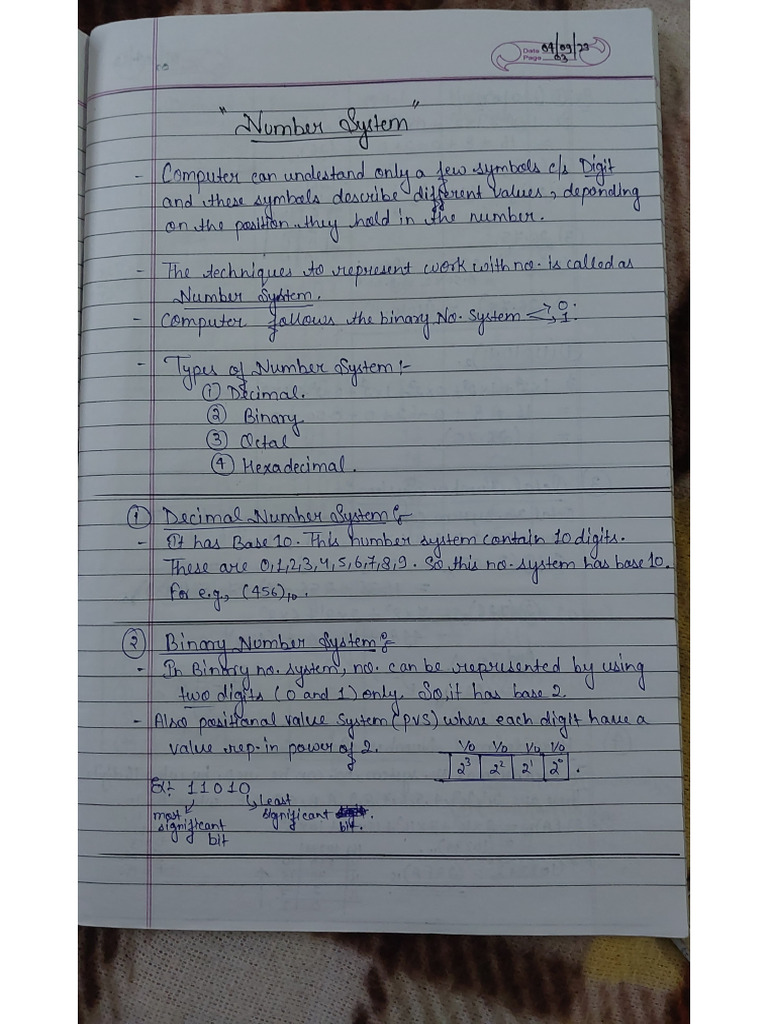 Date 04/09/23
Page 03
" Number System "
- Computer can undestand only a few symbols c/s Digit
and these symbols describe different values, depending
on the position they hold in the number.
- The techniques to represent work with no. is called as
Number System.
- Computer follows the binary No. System 0.
1.
- Types of Number System :-
① Decimal.
② Binary
③ Octal
④ Hexadecimal.
① Decimal Number System :-
- It has Base 10. This number system contain 10 digits.
These are 0,1,2,3,4,5,6,7,8,9. So this no. system has base 10.
For e.g., (456)₁₀.
② Binary Number System :-
- In Binary no. system, no. can be represented by using
two digits (0 and 1) only. So, it has base 2.
- Also positional value system (PVS) where each digit have a
value rep. in power of 2.
1/0 1/0 1/0 1/0
2³ 2² 2¹ 2⁰ .
Ex:- 11010
most significant bit
least significant bit.